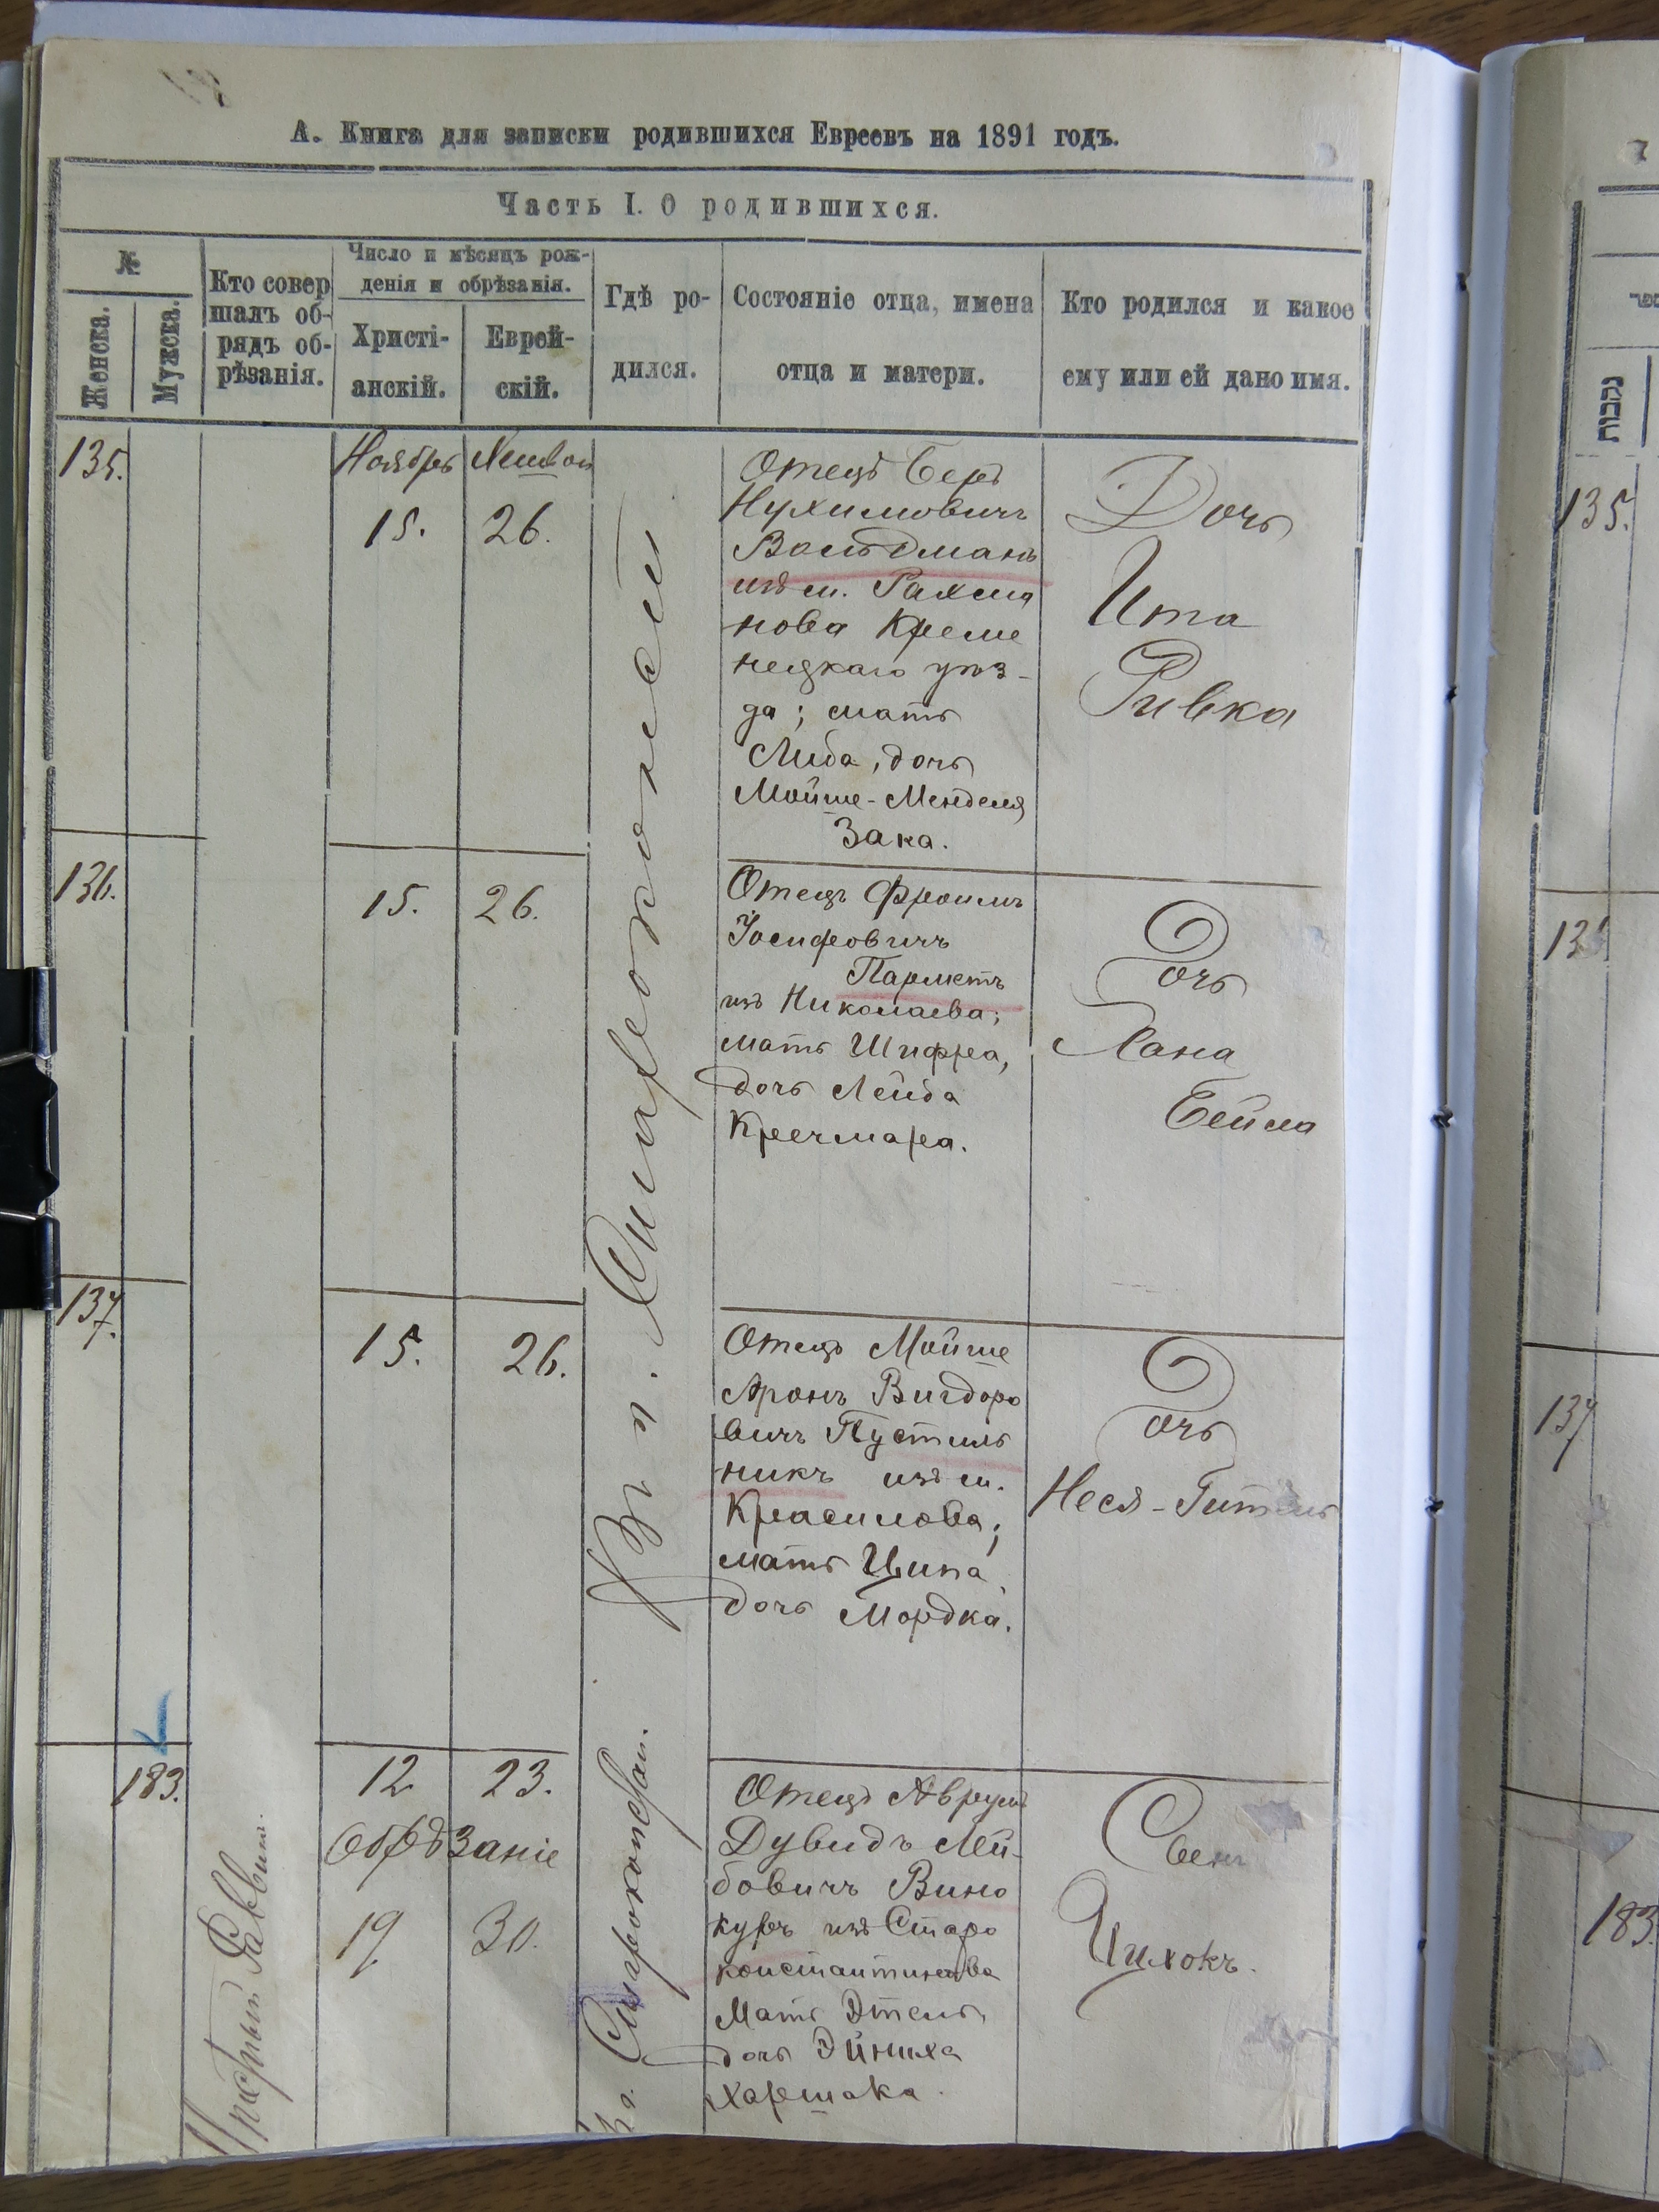 А. Книга для записки родившихся Евреевъ на 1891 годъ.
Часть I. О родившихся.
№
Женска.
Мужска.
Кто совер
шалъ об-
рядъ об-
рѣзанія.
Число и мѣсяцъ рож-
денія и обрѣзанія.
Христі-
анскій.
Еврей-
скій.
Гдѣ ро-
дился.
Состояніе отца, имена
отца и матери.
Кто родился и какое
ему или ей дано имя.
135.
Ноябрь
15.
26.
Отецъ Беръ
Нухимовичъ
Вольдманъ
изъ м. Рахма
нова Креме
нецкаго уѣз-
да; мать
Либа, дочь
Мойше-Менделя
Зака.
Дочь
Ита
Ривка
136.
15.
26.
Отецъ Фроимъ
Іосифовичъ
Парметъ
изъ Николаева;
мать Шифра,
дочь Лейба
Кречмара.
Дочь
Хана
Бейла
137.
15.
26.
Отецъ Мойше
Аронъ Вигдоро
вичъ Пустиль
никъ изъ м.
Красилова;
мать Ципа,
дочь Мордка.
Дочь
Неся-Гитель
183.
12
23.
Обрѣзаніе
19
30.
Отецъ Аврумъ
Дувидъ Лей-
бовичъ Вино
куръ изъ Старо
константинова
Мать Этель,
дочь Эйниха
Харшака.
Сынъ
Ицхокъ.
В г. Старокон
135.
137
183.
נקבות